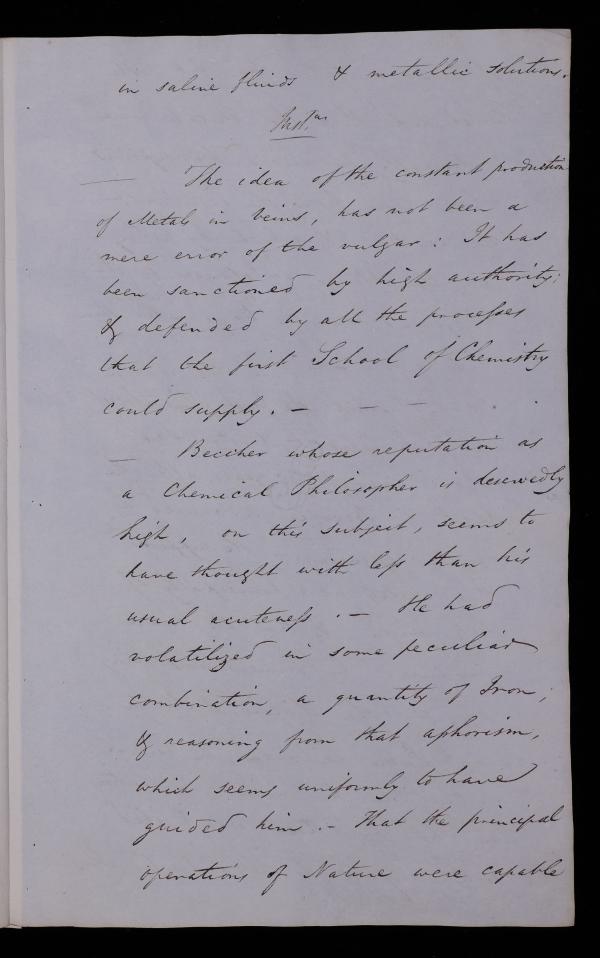 in saline fluids & metallic solutions.
— The idea of the constant production
of Metals in Veins, has not been a
mere error of the vulgar: It has
been sanctioned by high authority;
& defended by all the processes
that the first School of Chemistry
could supply. — — —
— Beccher whose reputation as
a Chemical Philosopher is deservedly
high, on this subject, seems to
have thought with less than his
usual acuteness. — He had
volatilized in some peculiar
combination, a quantity of Iron;
& reasoning from that aphorism,
which seems uniformly to have
guided him. — That the principal
operations of Nature were capable